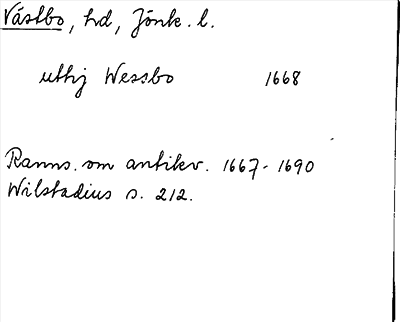 Västbo, hd, Jönk. l.
uthj Wessbo 1668
Ranns. om antikv. 1667-1690
Wilstadius s. 212.